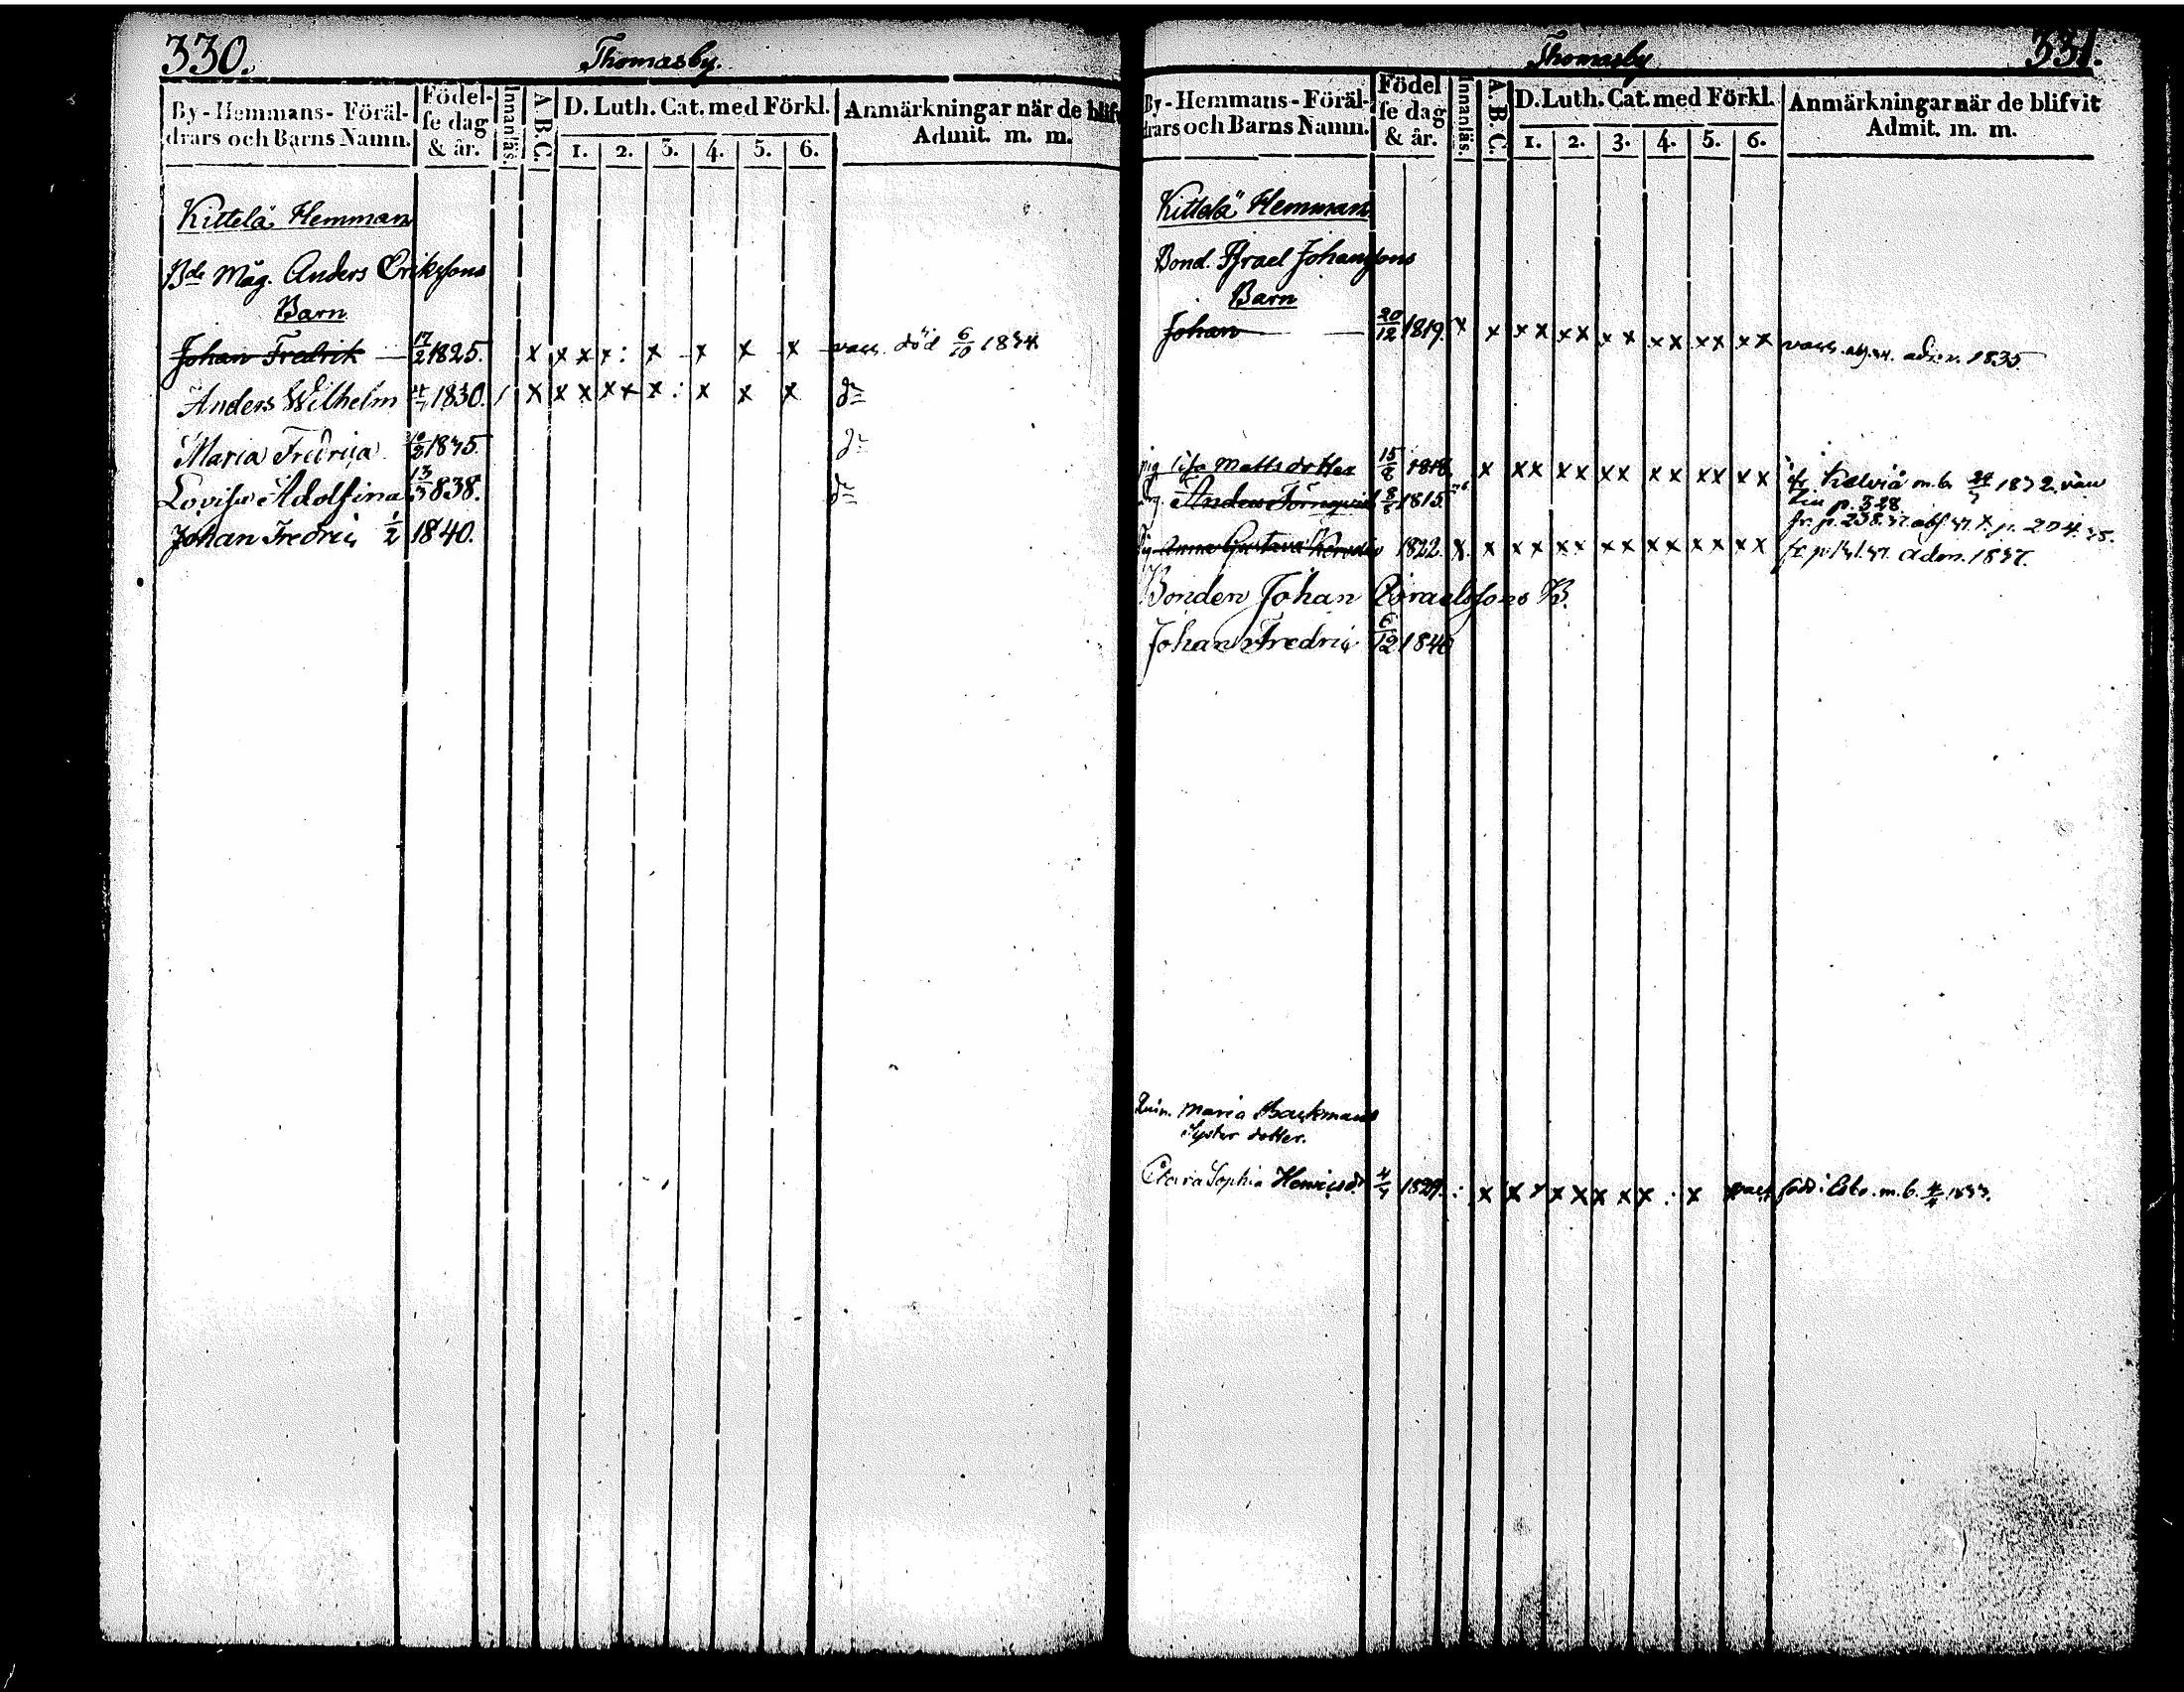 330.
Thomasby.
By-Hemmans-Föräl-
drars och Barns Namn.
Födel-
se dag
& år.
Innanläs.
A B C.
D. Luth. Cat. med Förkl.
1. 2. 3. 4. 5. 6.
Anmärkningar när de blifv
Admit. m. m.
Kittelä Hemman
Bde Måg. Anders Erikssons
Barn
Johan Fredrik 17/2 1825. x x x x : x x x x vacc. död 6/10 1834
Anders Wilhelm 1830. / x x x x x x : x x x do
Maria Fredrica 1835. do
Lovisa Adolfina 13/3 838. do
Johan Fredric 1/2 1840.
331.
Thomasby
By-Hemmans-Föräl-
drars och Barns Namn.
Födel
se dag
& år.
Innanläs.
A B C.
D. Luth. Cat. med Förkl.
1. 2. 3. 4. 5. 6.
Anmärkningar när de blifvit
Admit. m. m.
Kittelä Hemman
Bond. Israel Johanssons
Barn
Johan 20/12 1819. x x x x x x x x x x x x x x vacc. adm. 1835.
pig Mattsdotter 15/8 1818. x x x x x x x x x x x x x Kelviå m.b. 1832. vacc
p. 328.
Anders Törnqvist 8/8 1815. fr. p. 238. 37. p. 204.
Anna Gustava 1822. x x x x x x x x x x x x x x fr. p. adm. 1837.
Bonden Johan Israelssons B.
Johan Fredric 6/12 1840
Maria Backmans
Syster dotter.
Clara Sophia Henricsdr 4/7 1829. : x x x x x x x x : x vacc. född i m.b.